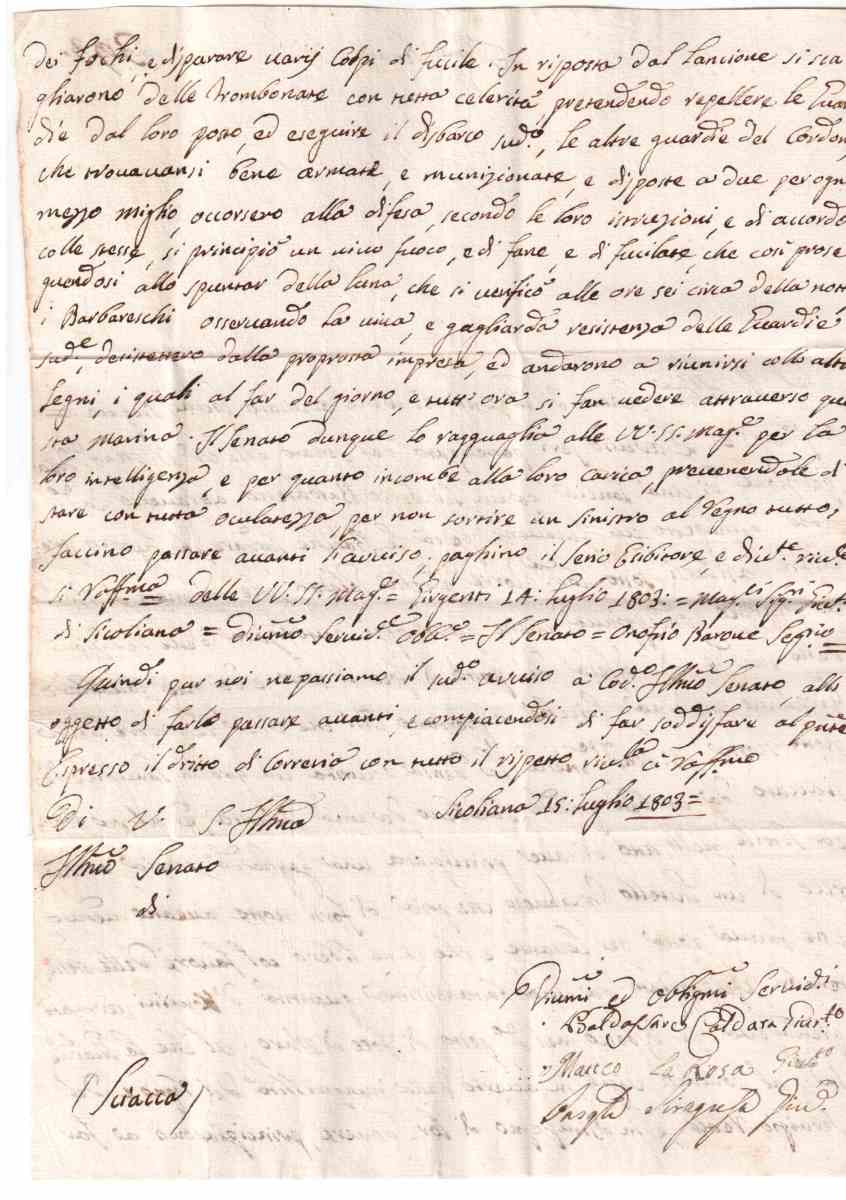 dei fochi, e disparare varij colpi di fucile. In risposta dal Lancione si sca
gliarono delle Trombonate con tutta celerità, pretendendo repellere le Guar
die dal loro posto, ed eseguire il disbarco sud.o, le altre guardie del Cordon
che trovavansi bene armate, e munizionate, e disposte a due per ogn
mezzo miglio, accorsero alla difesa, secondo le loro istruzioni, e di accordo
colle stesse, si principiò un vivo fuoco, e di fane, e di fucilate, che così prose
guendosi allo spuntar della luna, che si verificò alle ore sei circa della nott
i Barbareschi osservando la viva, e gagliarda resistenza delle Guardie
sud.e, desistettero dalla proprosta impresa, ed andarono a riunirsi collo altri
Legni, i quali al far del giorno, e tutt'ora si fan vedere attraverso que
sta Marina. Il Senato dunque lo ragguaglia alle VV. SS. Mag.e per la
loro intelligenza, e per quanto incombe alla loro carica, prevenendole di
stare con tutta oculatezza, per non sortire un sinistro al Regno tutto,
faccino passare avanti l'avviso, paghino il Serio Esibitore, e
si Raff.ma delle VV. SS. Mag.e = Girgenti 14: Luglio 1803: = Mag.ci Sig.ri Giur.ti
di Siculiana = Div.mo Servid.e Obb.o = Il Senato = Onofrio Barone Seg.rio
Quindi pur noi ne passiamo il sud.o avviso a Cod.o Ill.mo Senato, allo
oggetto di farlo passare avanti, e compiacendosi di far soddisfare al pnte
Espresso il dritto di Correria con tutto il rispetto
Di V. S. Ill.ma Siculiana 15: Luglio 1803 =
Ill.mo Senato
di
Div.mi ed obblig.mi Servid.i
Baldassare Caldara Giur.to
Marco La Rosa Giur.to
Siragusa Giur.o
Sciacca